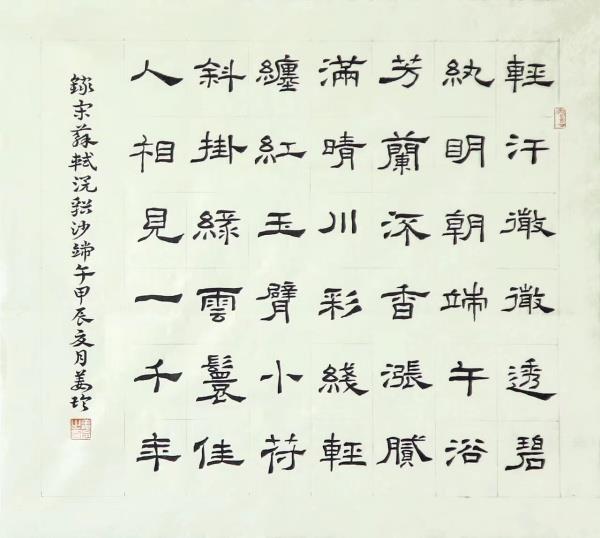 輕汗微微透碧
紈明朝端午浴
芳蘭流香漲膩
滿晴川彩綫輕
纏紅玉臂小符
斜掛綠雲鬟佳
人相見一千年
錄宋蘇軾浣谿沙端午甲辰夏月姜